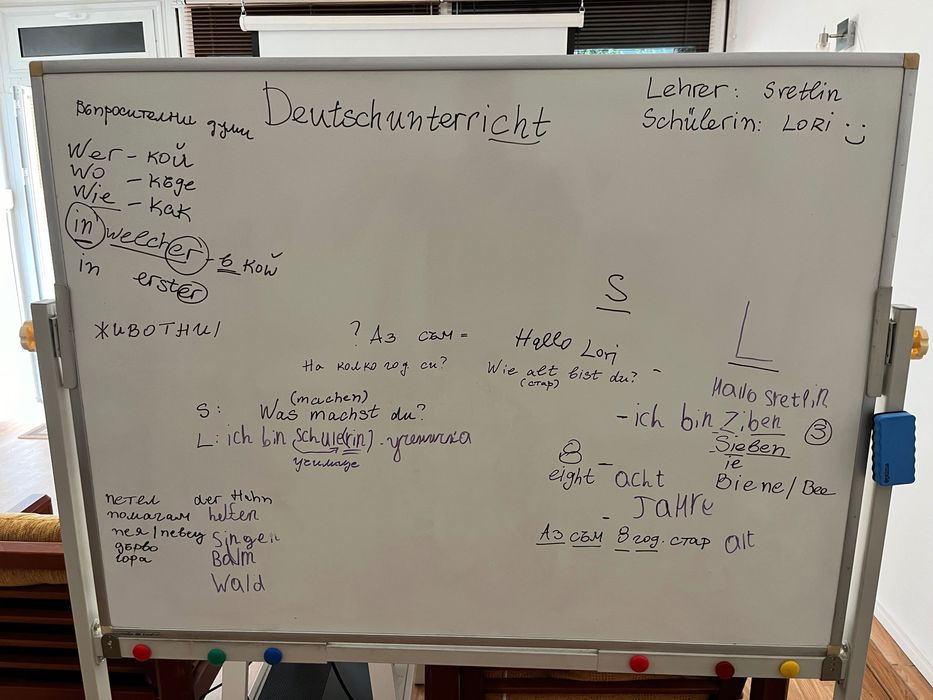 Въпросителни думи
Deutschunterricht
Lehrer: Svetlin
Schülerin: LORI
Wer - кой
Wo - къде
Wie - как
in welcher - в кой
in erster
животни
S
L
? Аз съм =
Hallo Lori
На колко год си?
Wie alt bist du? -
(стар)
Hallo Svetlin
(machen)
S: Was machst du?
- ich bin Ziben
3
L: ich bin Schule(rin) - ученичка
училище
Sieben
ie
8
eight - acht
Biene/Bee
- Jahre
Аз съм 8 год. стар alt
петел der Hahn
помагам helfen
пея/певец Singen
дърво Baum
гора Wald